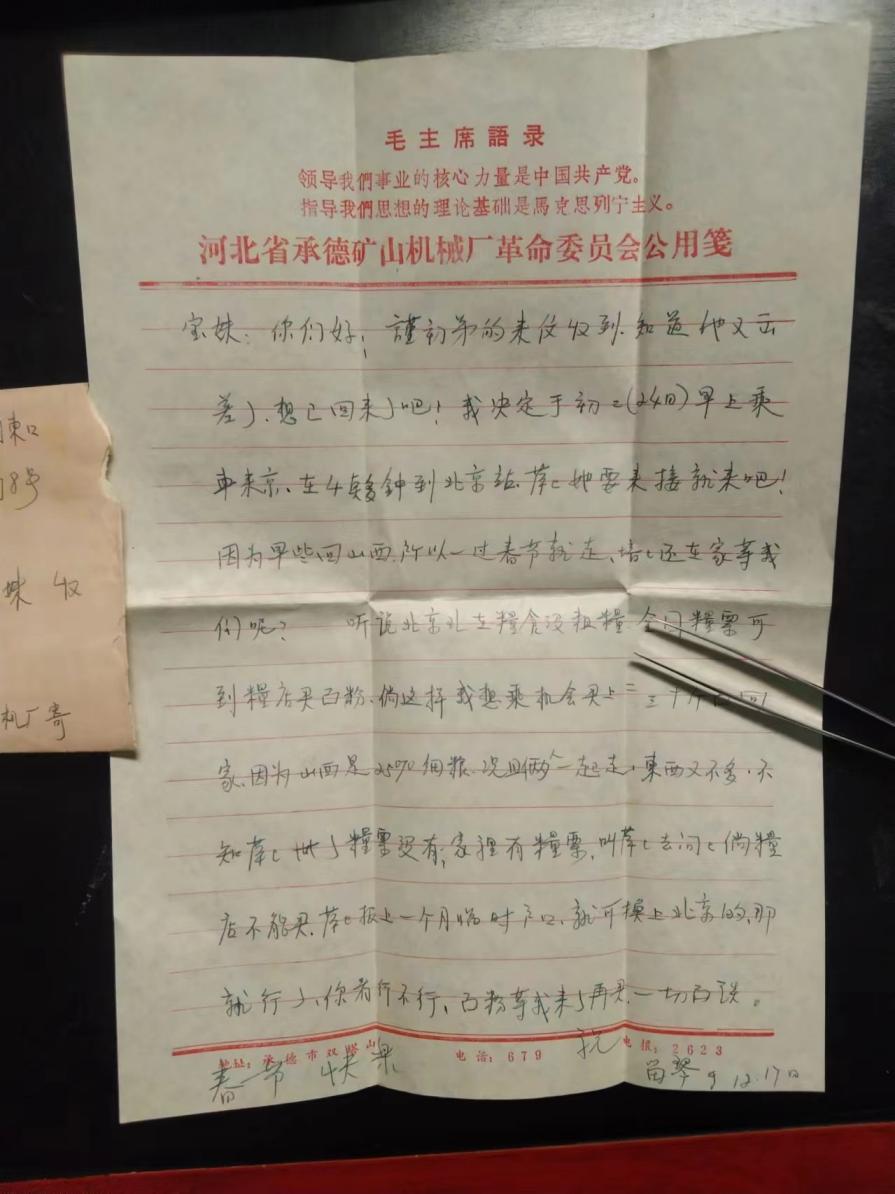 毛主席語录
领导我們事业的核心力量是中国共产党。
指导我們思想的理论基础是馬克思列宁主义。
河北省承德矿山机械厂革命委员会公用箋
宝妹：你们好！謹初弟的来仅收到.知道他又云
差了、想已回来了吧！我决定于初二(24日)早上乘
車来京、在4点多钟到北京站.她要来接就来吧！
因为早些回山西.所以一过春节就走、还在家等我
们呢？ 听说北京粮糧全国糧票可
到糧店买面粉、倘这样我想乘机会买上二三十斤
家.因为山西是25%细粮.况且俩人一起走,東西又不多.不
知糧票没有,家裡有糧票,叫去问倘糧
店不能买.报上一个月临时户口、就可换上北京的,那
就行了、你看行不行、面粉等我来了再买.一切面談。
祝
春节快乐
12.17日
地址：承德市双塔山
电话：679
电报：2623
東口
8号
妹 收
机厂寄